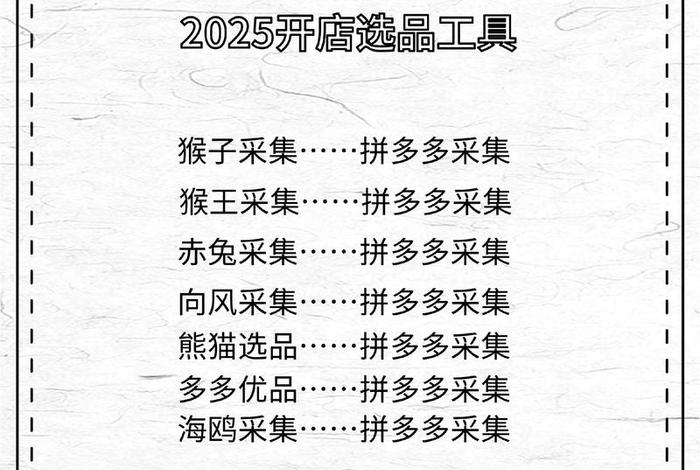 2025开店选品工具
猴子采集……拼多多采集
猴王采集……拼多多采集
赤兔采集……拼多多采集
向风采集……拼多多采集
熊猫选品……拼多多采集
多多优品……拼多多采集
海鸥采集……拼多多采集